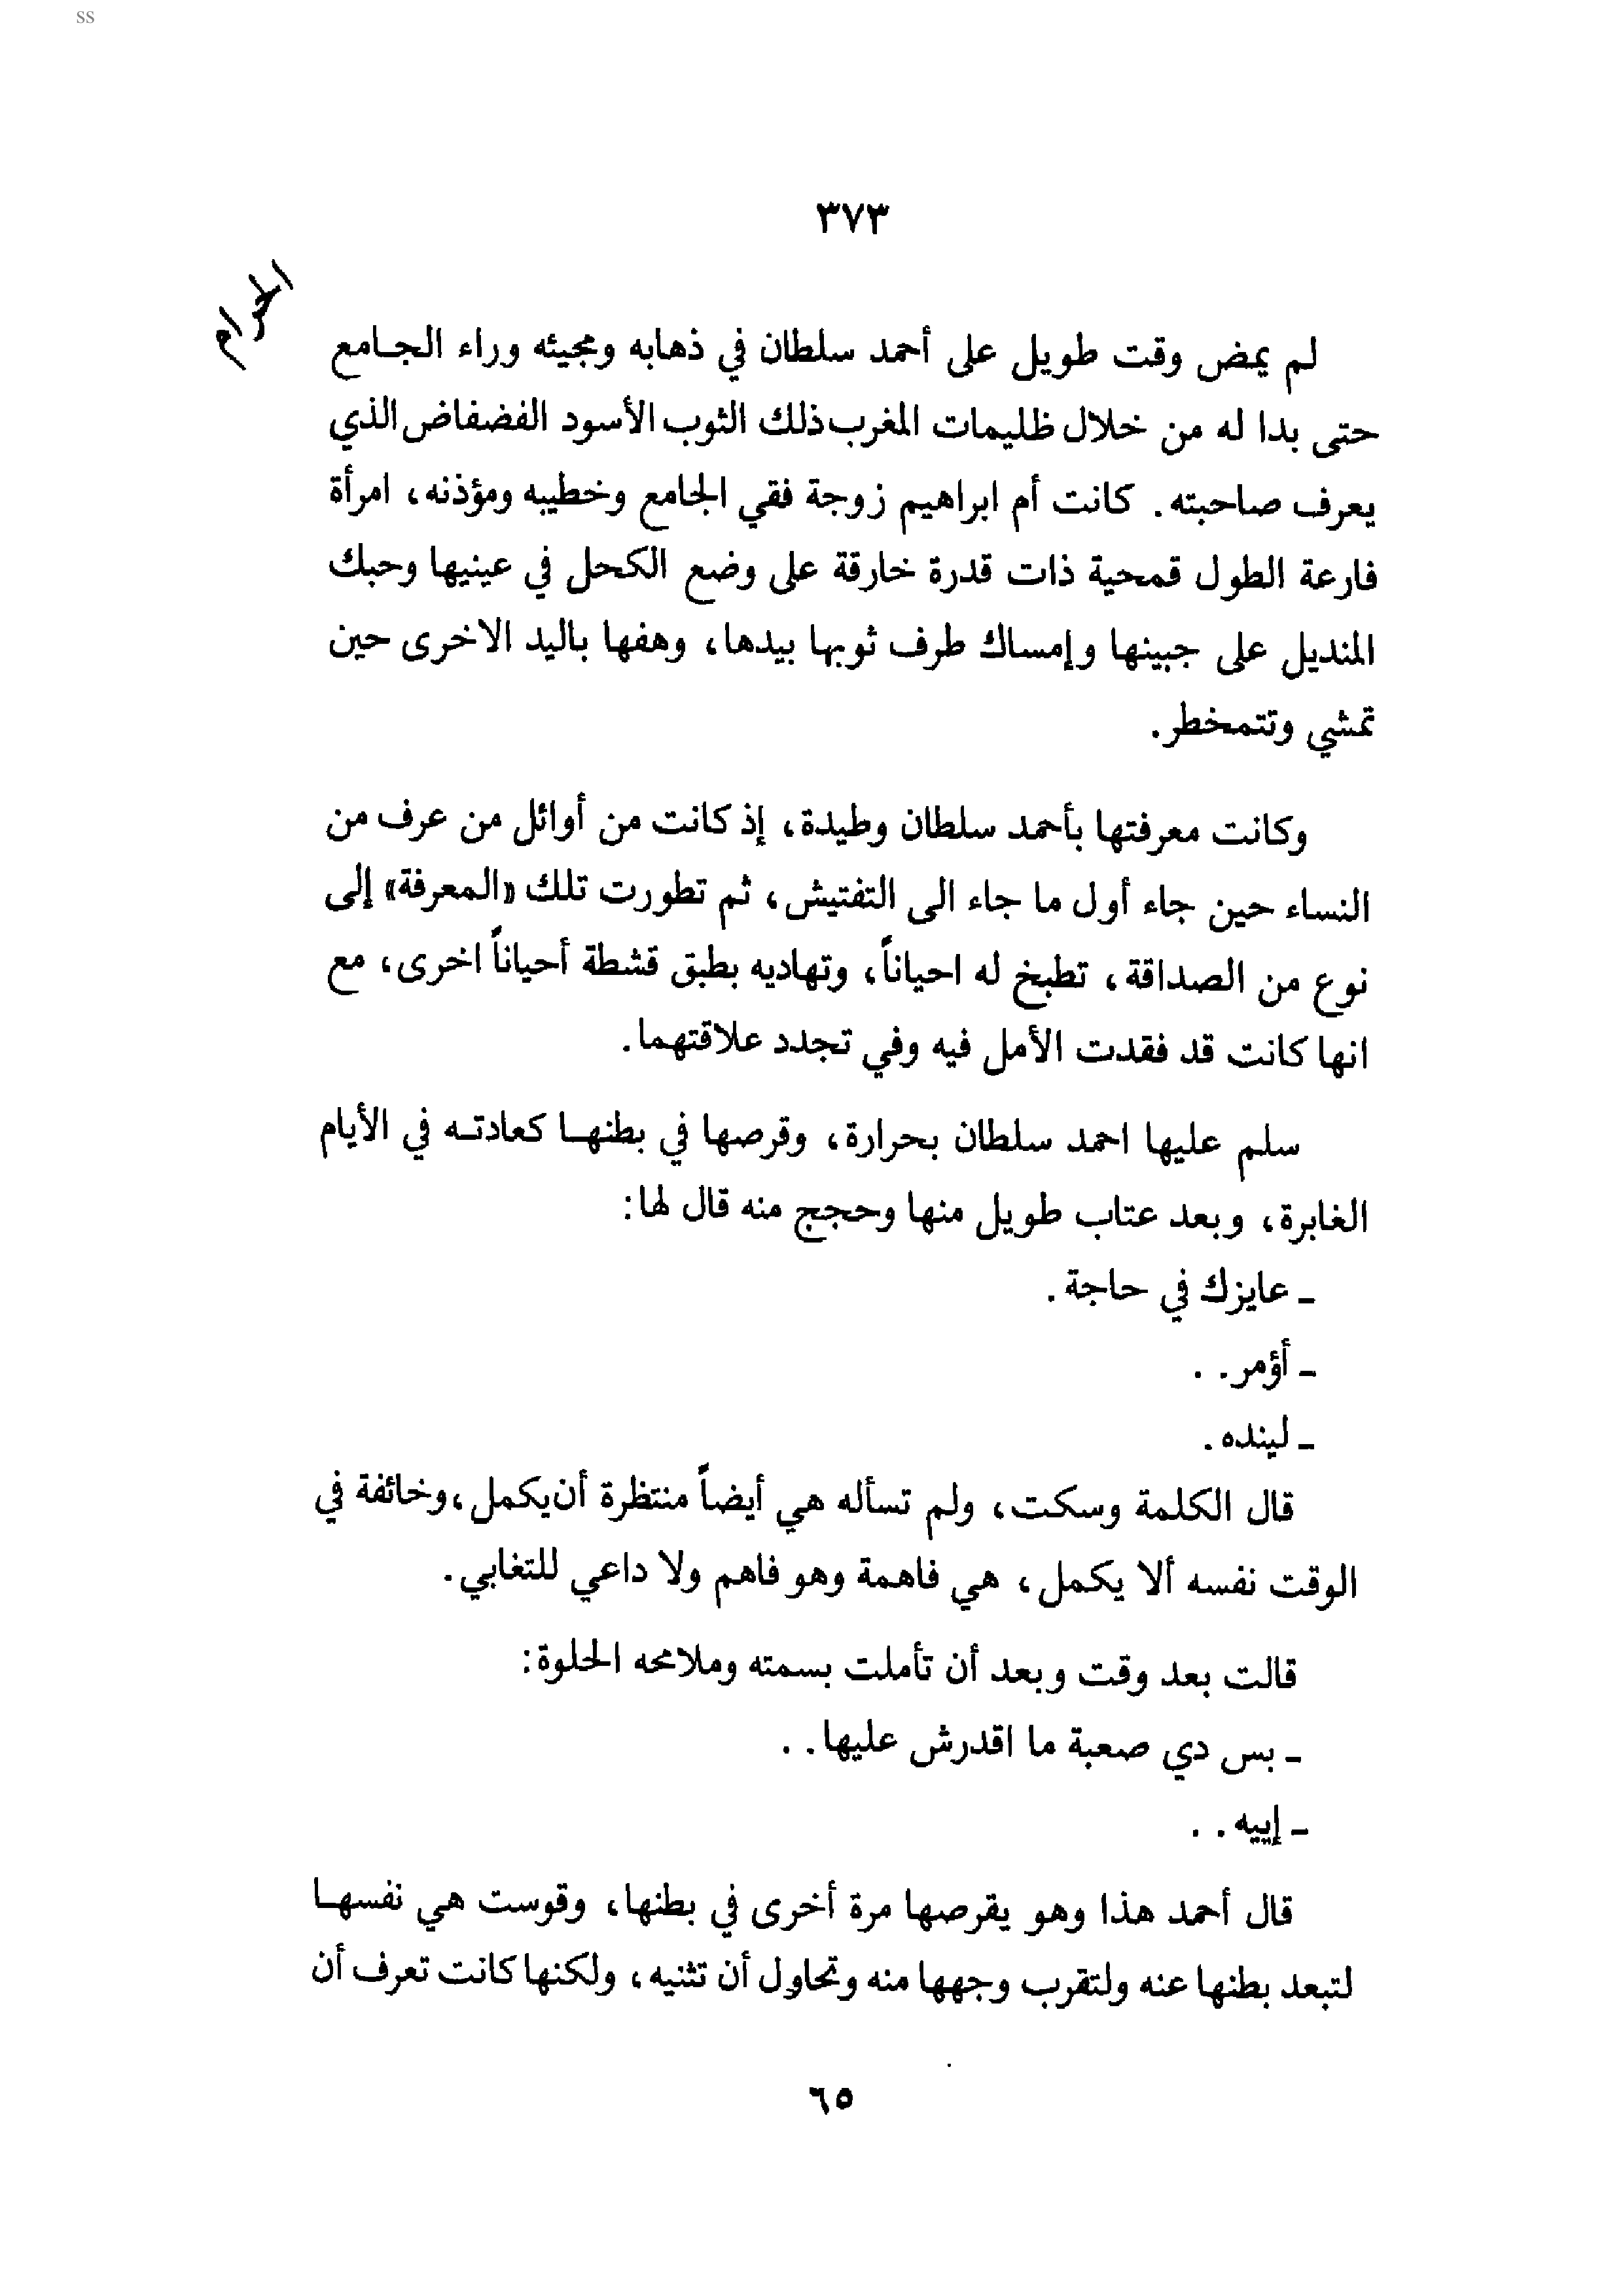 ss
٣٧٣
الحرام
لم يمض وقت طويل على أحمد سلطان في ذهابه ومجيئه وراء الجـامع
حتى بدا له من خلال ظليمات المغرب ذلك الثوب الأسود الفضفاض الذي
يعرف صاحبته. كانت أم ابراهيم زوجة فقي الجامع وخطيبه ومؤذنه، امرأة
فارعة الطول قمحية ذات قدرة خارقة على وضع الكحل في عينيها وحبك
المنديل على جبينها وإمساك طرف ثوبها بيدها، وهفها باليد الاخرى حين
تمشي وتتمخطر.
وكانت معرفتها بأحمد سلطان وطيدة، إذ كانت من أوائل من عرف من
النساء حين جاء أول ما جاء الى التفتيش، ثم تطورت تلك «المعرفة» إلى
نوع من الصداقة، تطبخ له احياناً، وتهاديه بطبق قشطة أحياناً اخرى، مع
انها كانت قد فقدت الأمل فيه وفي تجدد علاقتهما.
سلم عليها احمد سلطان بحرارة، وقرصها في بطنهـا كعادتـه في الأيام
الغابرة، وبعد عتاب طويل منها وحجج منه قال لها:
ـ عايزك في حاجة.
ـ أؤمر. .
ـ لينده.
قال الكلمة وسكت، ولم تسأله هي أيضاً منتظرة أن يكمل، وخائفة في
الوقت نفسه ألا يكمل، هي فاهمة وهو فاهم ولا داعي للتغابي.
قالت بعد وقت وبعد أن تأملت بسمته وملامحه الحلوة:
ـ بس دي صعبة ما اقدرش عليها. .
ـ إييه. .
قال أحمد هذا وهو يقرصها مرة أخرى في بطنها، وقوست هي نفسهـا
لتبعد بطنها عنه ولتقرب وجهها منه وتحاول أن تثنيه، ولكنها كانت تعرف أن
٦٥